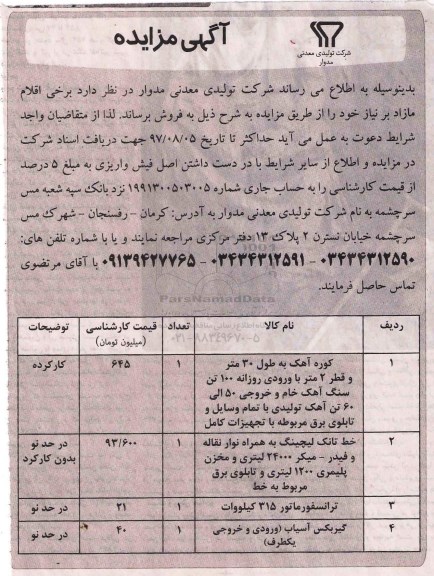 آگهی مزایده
شرکت تولیدی معدنی
مدوار
بدینوسیله به اطلاع می رساند شرکت تولیدی معدنی مدوار در نظر دارد برخی اقلام
مازاد بر نیاز خود را از طریق مزایده به شرح ذیل به فروش برساند. لذا از متقاضیان واجد
شرایط دعوت به عمل می آید حداکثر تا تاریخ ۹۷/۰۸/۰۵ جهت دریافت اسناد شرکت
در مزایده و اطلاع از سایر شرایط با در دست داشتن اصل فیش واریزی به مبلغ ۵ درصد
از قیمت کارشناسی را به حساب جاری شماره ۱۹۹۱۳۰۰۵۰۳۰۰۵ نزد بانک سپه شعبه مس
سرچشمه به نام شرکت تولیدی معدنی مدوار به آدرس: کرمان - رفسنجان - شهرک مس
سرچشمه خیابان نسترن ۲ پلاک ۱۳ دفتر مرکزی مراجعه نمایند و یا با شماره تلفن های:
۰۳۴۳۴۳۱۲۵۹۰ - ۰۳۴۳۴۳۱۲۵۹۱ - ۰۹۱۳۹۴۲۷۷۶۵ با آقای مرتضوی
تماس حاصل فرمایند.
ParsNamadData
۰۲۱-۸۸۳۴۹۶۷۰-۵
ردیف نام کالا تعداد قیمت کارشناسی توضیحات
(میلیون تومان)
۱ کوره آهک به طول ۳۰ متر ۱ ۶۴۵ کارکرده
و قطر ۲ متر با ورودی روزانه ۱۰۰ تن
سنگ آهک خام و خروجی ۵۰ الی
۶۰ تن آهک تولیدی با تمام وسایل و
تابلوی برق مربوطه با تجهیزات کامل
۲ خط تانک لیچینگ به همراه نوار نقاله ۱ ۹۳/۶۰۰ در حد نو
و فیدر - میکر ۲۴۰۰۰ لیتری و مخزن بدون کارکرد
پلیمری ۱۲۰۰ لیتری و تابلوی برق
مربوط به خط
۳ ترانسفورماتور ۳۱۵ کیلووات ۱ ۲۱ در حد نو
۴ گیربکس آسیاب (ورودی و خروجی ۱ ۴۰ در حد نو
یکطرف)